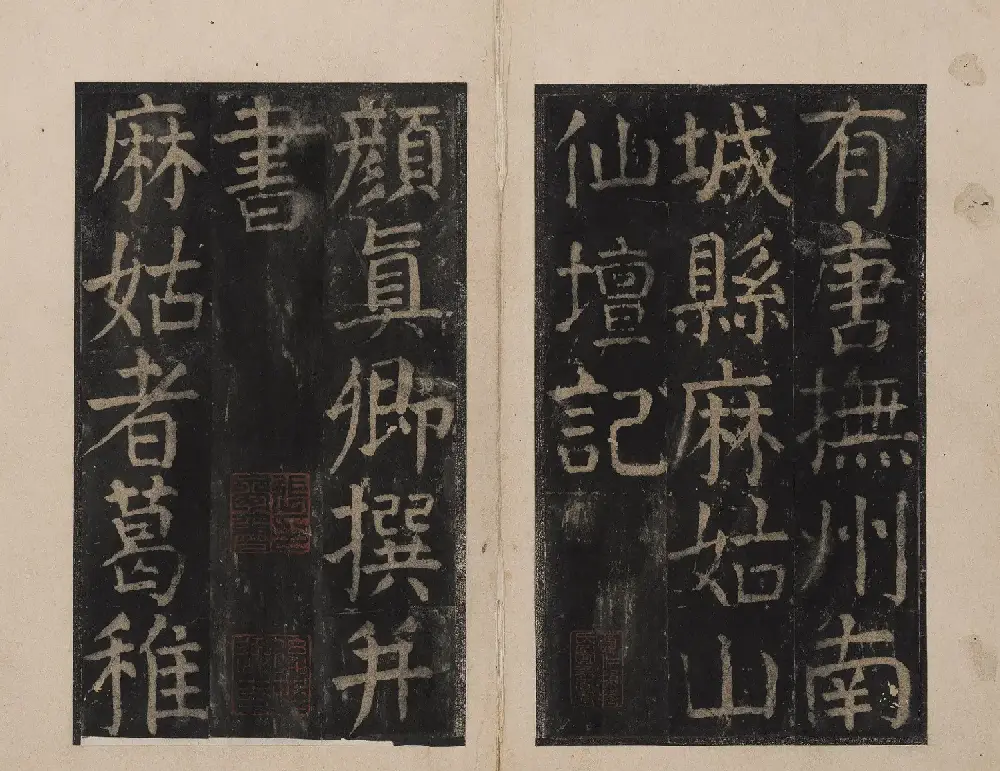 有唐撫州南
城縣麻姑山
仙壇記
顏眞卿撰并
書
麻姑者葛稚